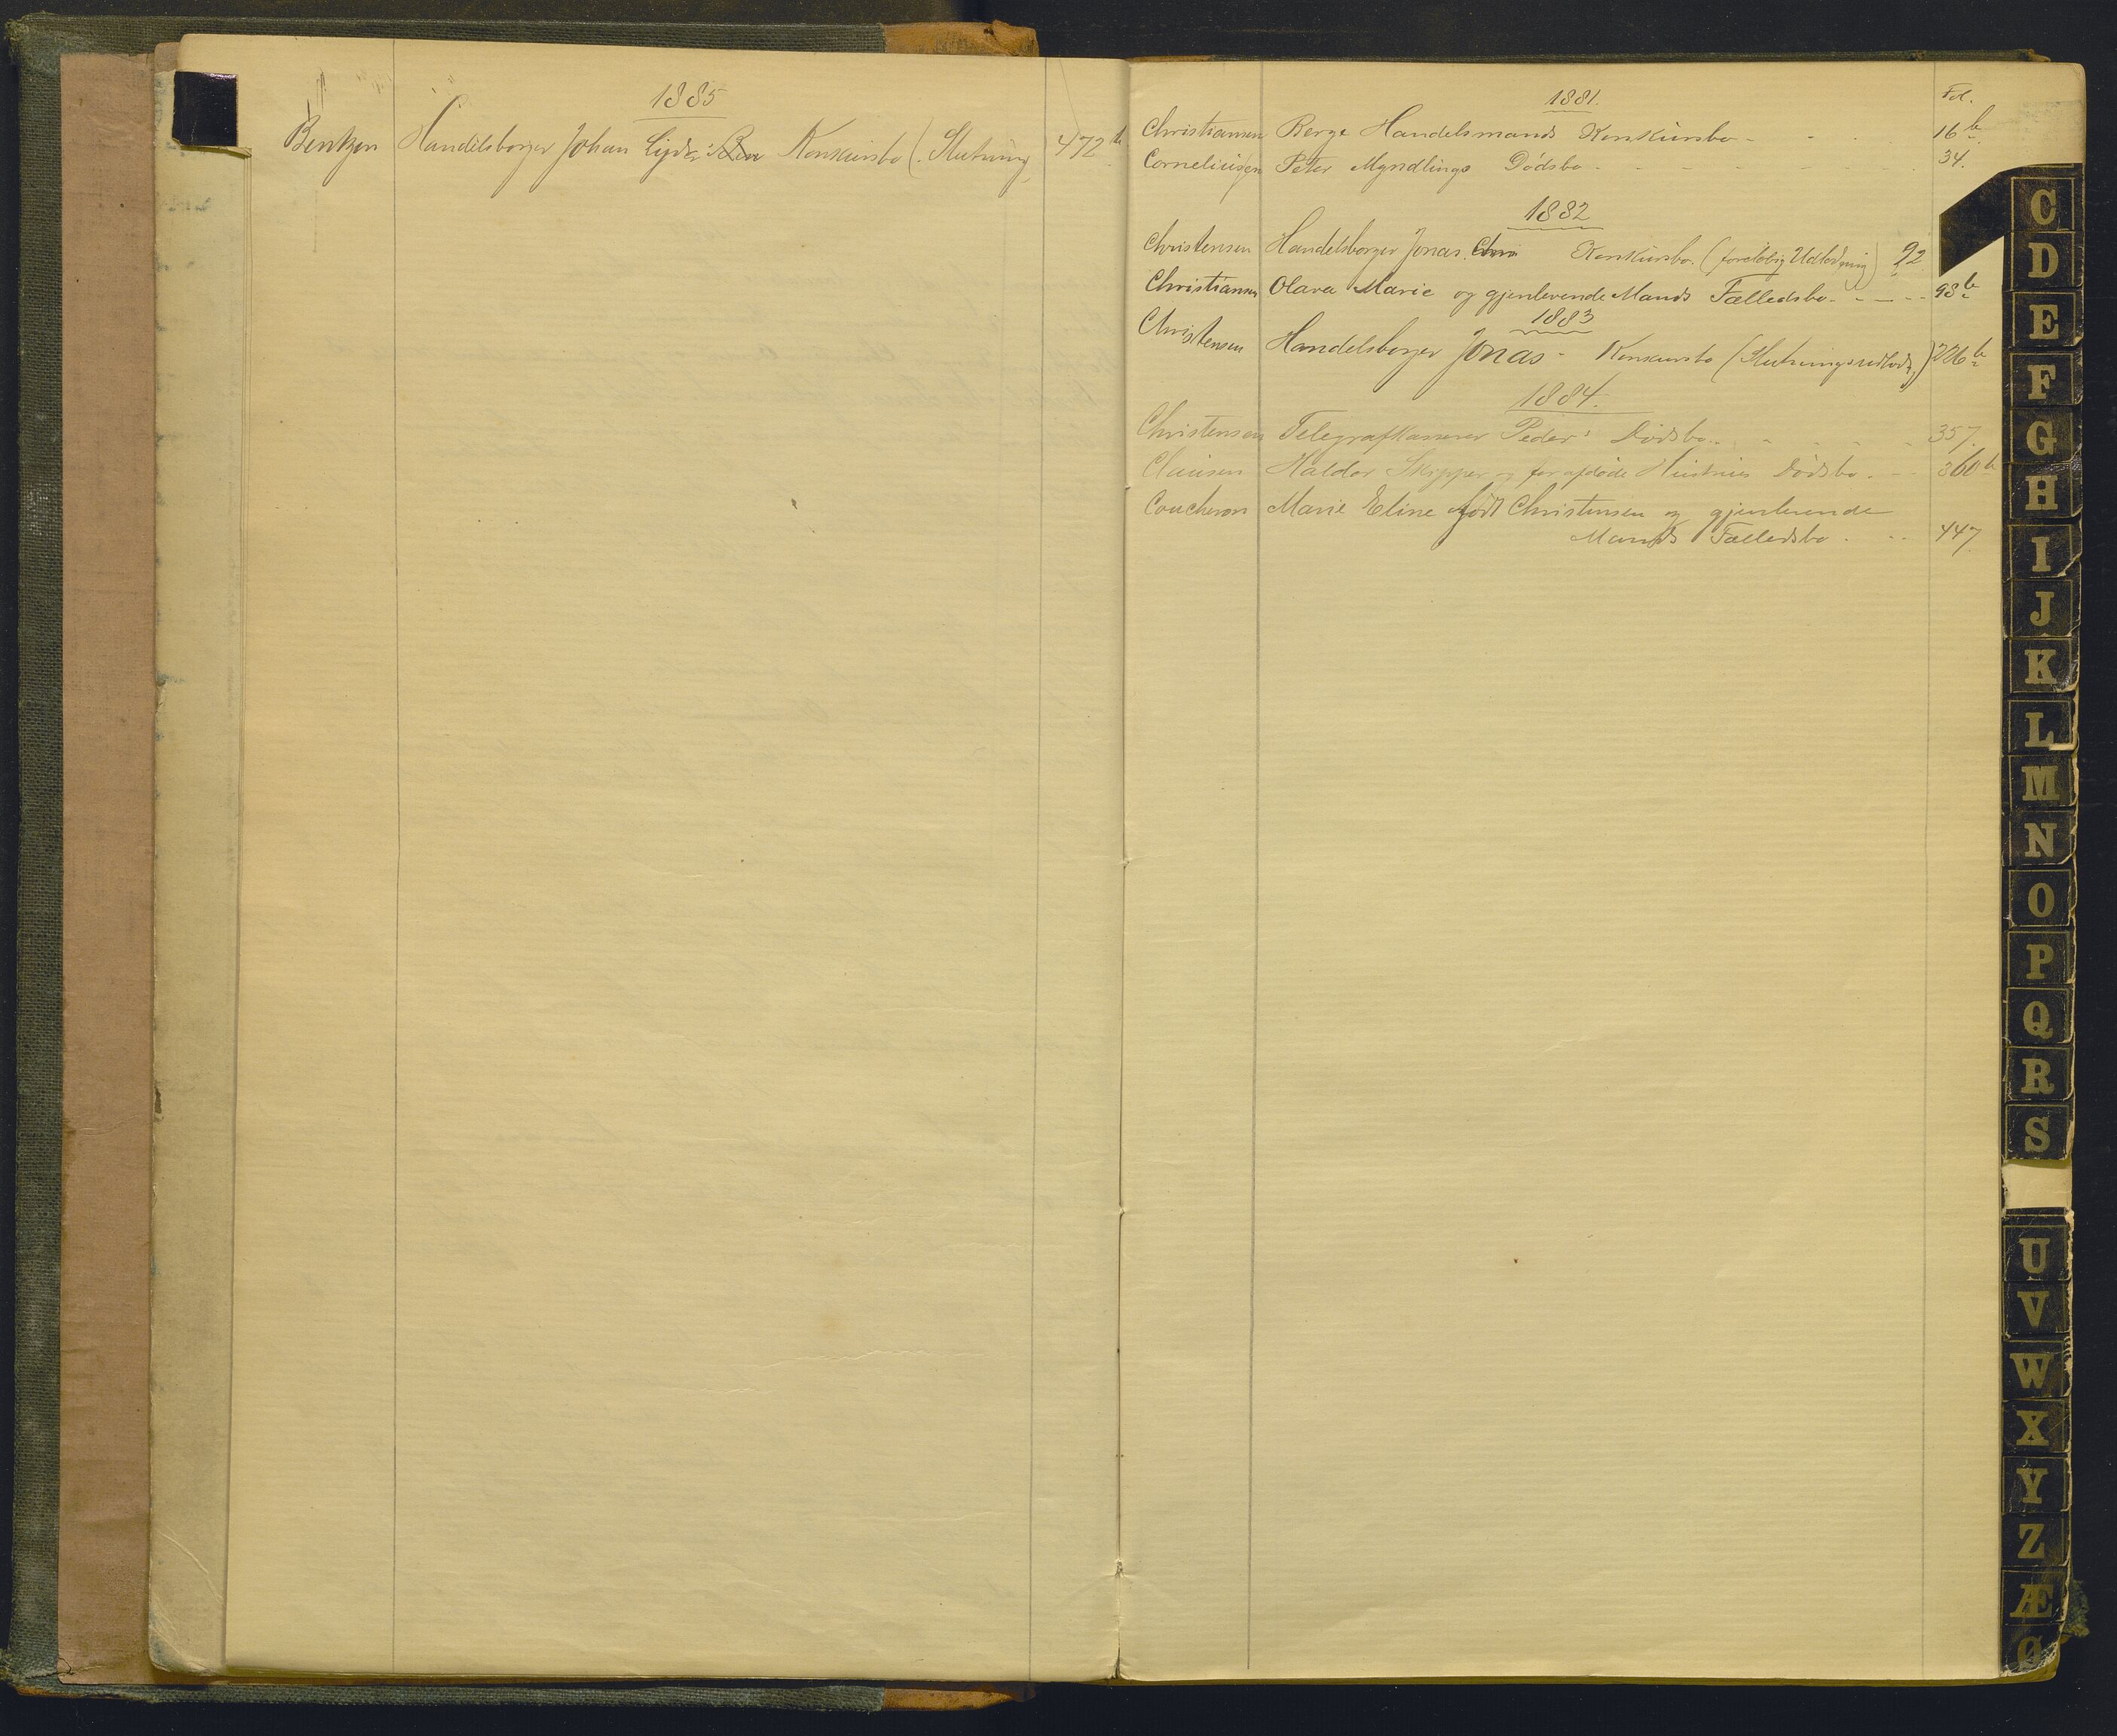 1885
Bentzen Handelsborger Johan Konkursbo (Slutning 472 b
1881.
Fol.
Christiansen Berge Handelsmands Konkursbo - - - 16 b
Corneliussen Peter Myndlings Dødsbo - - - - - - 34.
1882
Christensen Handelsborger Jonas Chri Konkursbo. (foreløbig Udlodning) 92
Christiansen Olava Marie og gjenlevende Mands Fælledsbo. - - - 98 b
1883
Christensen Handelsborger Jonas - Konkursbo (Slutningsudlodn.) 226 b
1884.
Christensen Telegrafkasserer Peders Dødsbo. - - - - - 357.
Clausen Haldor Skipper og før afdøde Hustrues Dødsbo. - - 360 b
Coucheron Marie Eline født Christensen og gjenlevende
Mands Fælledsbo. - - 447.
C
D
E
F
G
H
I
J
K
L
M
N
O
P
Q
R
S
U
V
W
X
Y
Z
Æ
Ø